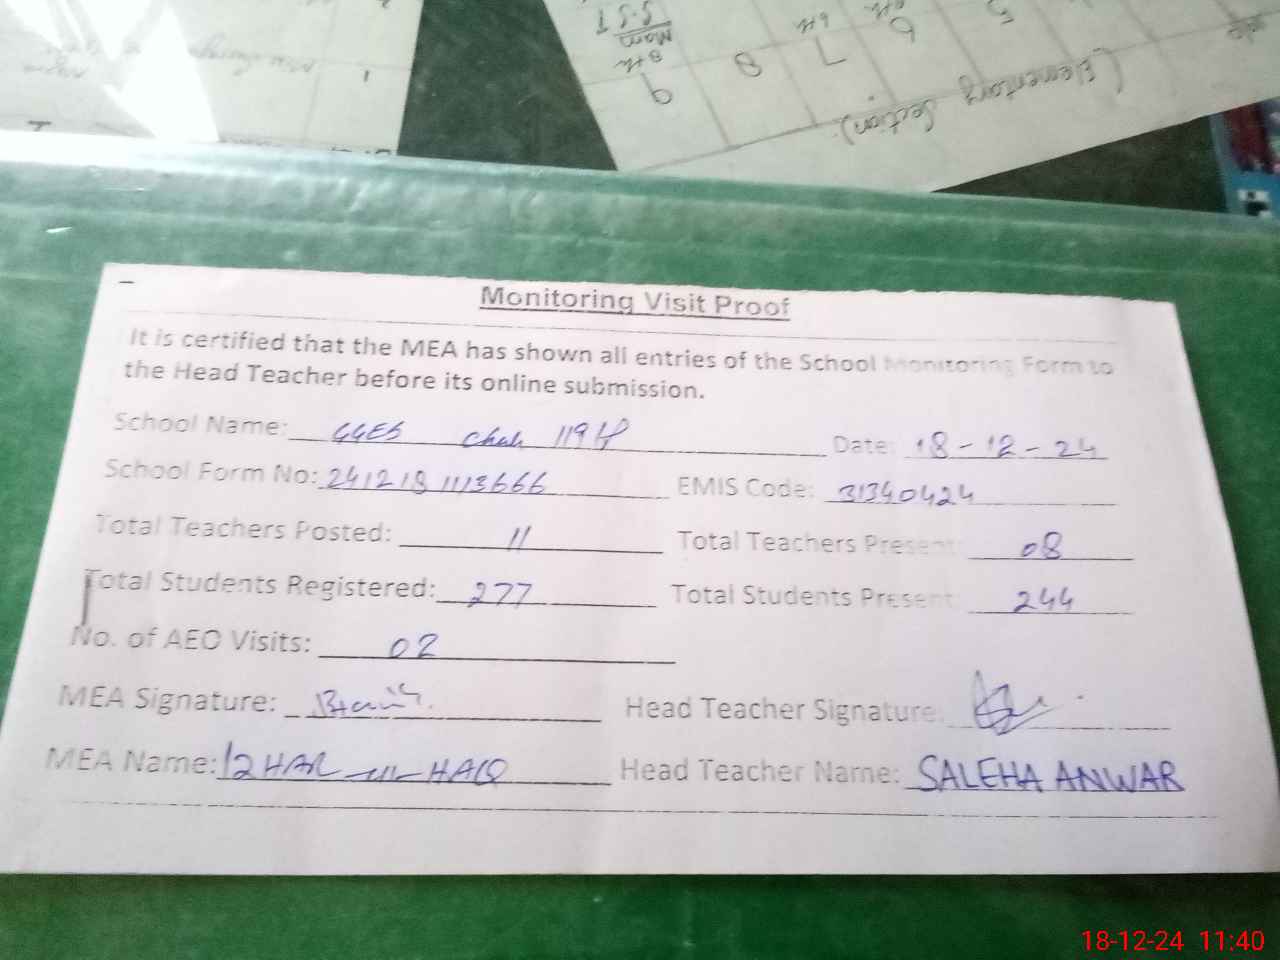 S.S.T
Mam
8th
9
8
7
6th
6
5
(Elementary Section)
1
Monitoring Visit Proof
It is certified that the MEA has shown all entries of the School Monitoring Form to
the Head Teacher before its online submission.
School Name: GGES Chak 119 P Date: 18-12-24
School Form No: 241218 1113666 EMIS Code: 31340424
Total Teachers Posted: 11 Total Teachers Present: 08
Total Students Registered: 277 Total Students Present: 244
No. of AEO Visits: 02
MEA Signature: Head Teacher Signature:
MEA Name: IZHAR-UL-HAQ Head Teacher Name: SALEHA ANWAR
18-12-24 11:40